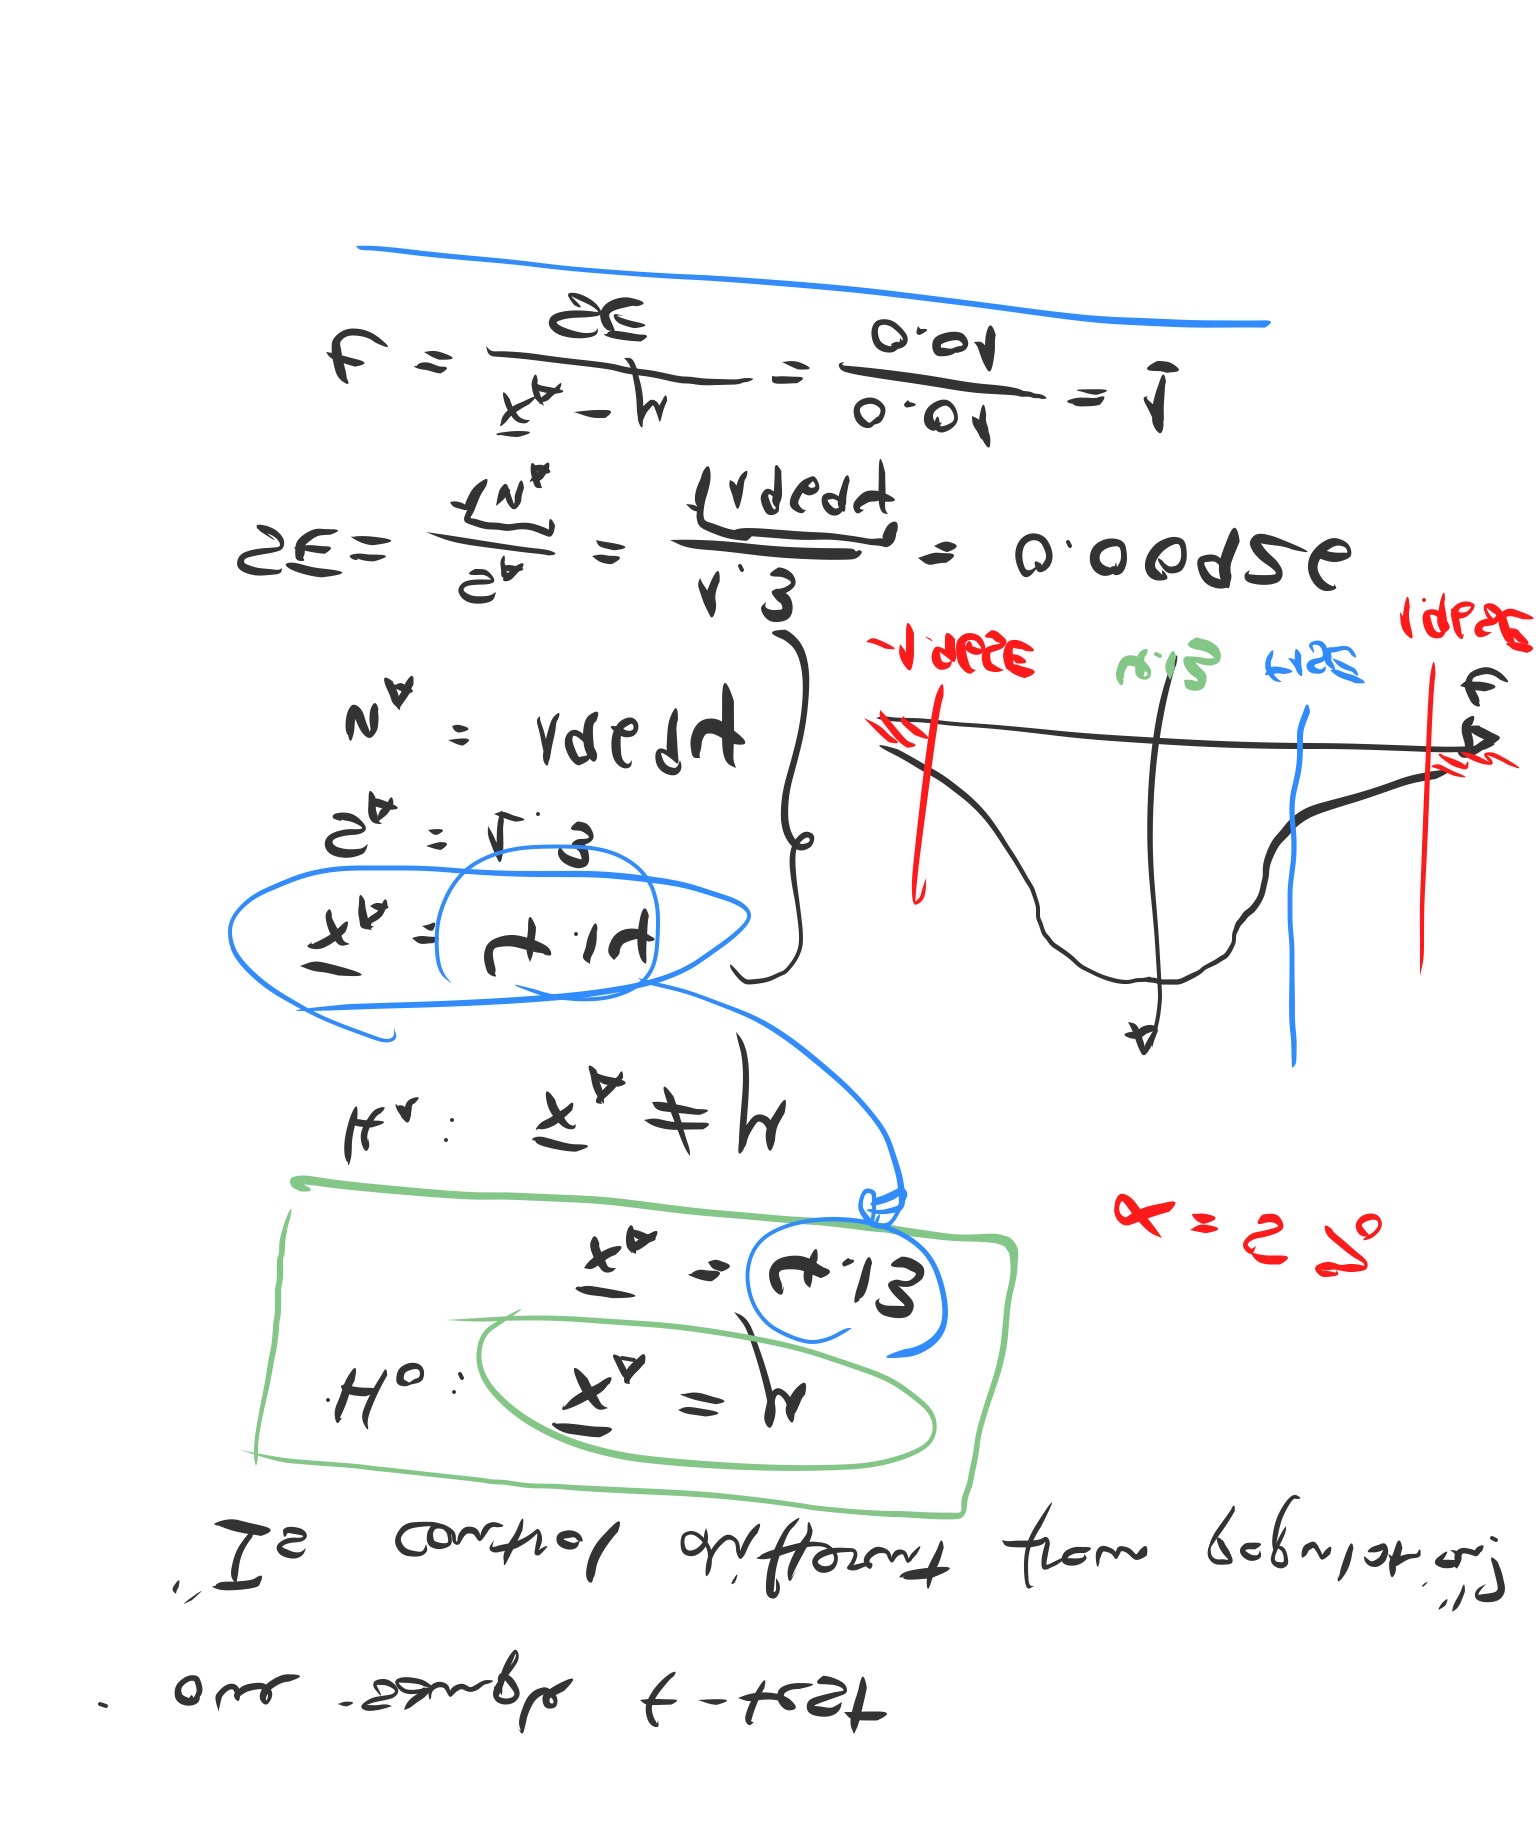 · one-sample t-test
"Is control different from population"?
H₀: x̄_A = μ
x̄_A = 4.13
α = 5%
H₁: x̄_A ≠ μ
x̄_A = 4.14
s_A = 1.3
n_A = 19694
t
-1.96SE 4.13 +1SE 1.96SE
SE = s_A/√n_A = 1.3/√19694 = 0.00926
t = (x̄_A - μ)/SE = 0.01/0.01 = 1